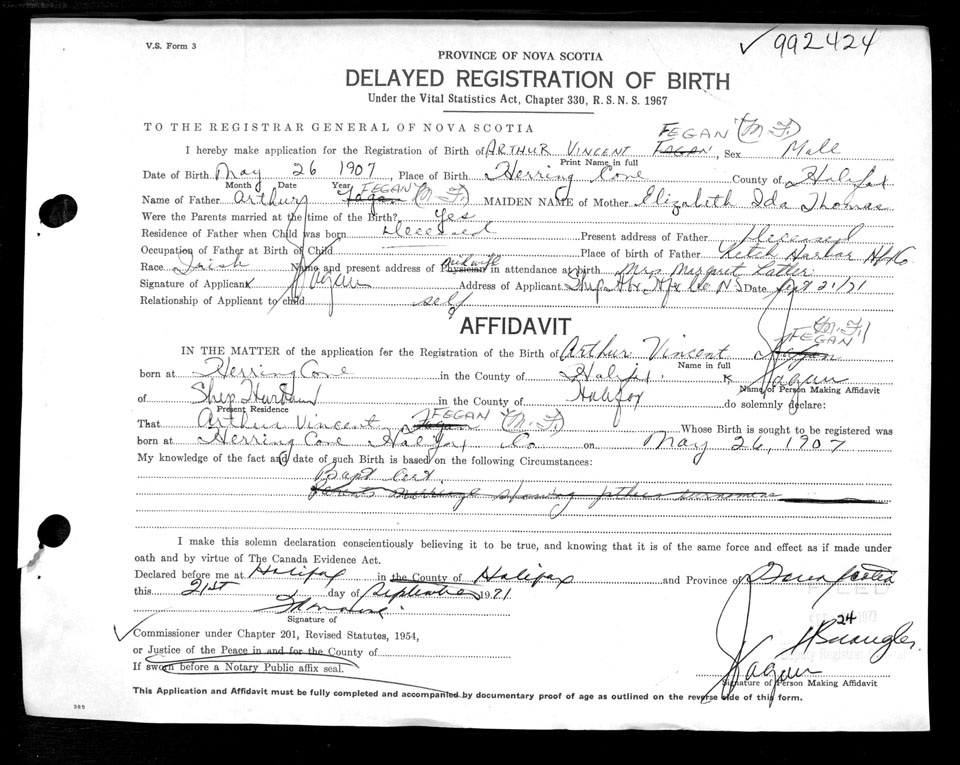 V.S. Form 3
✓ 992424
PROVINCE OF NOVA SCOTIA
DELAYED REGISTRATION OF BIRTH
Under the Vital Statistics Act, Chapter 330, R. S. N. S. 1967
TO THE REGISTRAR GENERAL OF NOVA SCOTIA
FEGAN (M.F.)
I hereby make application for the Registration of Birth of ARTHUR VINCENT FAGAN, Sex Male
Print Name in full
Date of Birth May 26 1907, Place of Birth Herring Cove County of Halifax
Month Date Year
FEGAN (M.F.)
Name of Father Arthur Fagan MAIDEN NAME of Mother Elizabeth Ida Thomas
Were the Parents married at the time of the Birth? Yes
Residence of Father when Child was born Deceased Present address of Father Deceased
Occupation of Father at Birth of Child Place of birth of Father Ketch Harbor Hfx Co
midwife
Race Irish Name and present address of Physician in attendance at birth Mrs Margaret
Signature of Applicant x Fagan Address of Applicant Ship Hbr. Hfx Co N.S. Date Sept 21/71
Relationship of Applicant to child self
AFFIDAVIT
(M.F.)
FEGAN
IN THE MATTER of the application for the Registration of the Birth of Arthur Vincent Fagan
Name in full
born at Herring Cove in the County of Halifax. x Fagan
Name of Person Making Affidavit
of Ship Harbour in the County of Halifax do solemnly declare:
Present Residence
FEGAN (M.F.)
That Arthur Vincent Fagan Whose Birth is sought to be registered was
born at Herring Cove Halifax Co on May 26, 1907
My knowledge of the fact and date of such Birth is based on the following Circumstances:
Bapt Cert.
Parents marriage showing fathers
I make this solemn declaration conscientiously believing it to be true, and knowing that it is of the same force and effect as if made under
oath and by virtue of The Canada Evidence Act.
Declared before me at Halifax in the County of Halifax and Province of Nova Scotia
this 21st day of September 1971
FILED
Signature of
24
✓ Commissioner under Chapter 201, Revised Statutes, 1954,
or Justice of the Peace in and for the County of
Deputy Registrar
If sworn before a Notary Public affix seal.
Fagan
Signature of Person Making Affidavit
This Application and Affidavit must be fully completed and accompanied by documentary proof of age as outlined on the reverse side of this form.